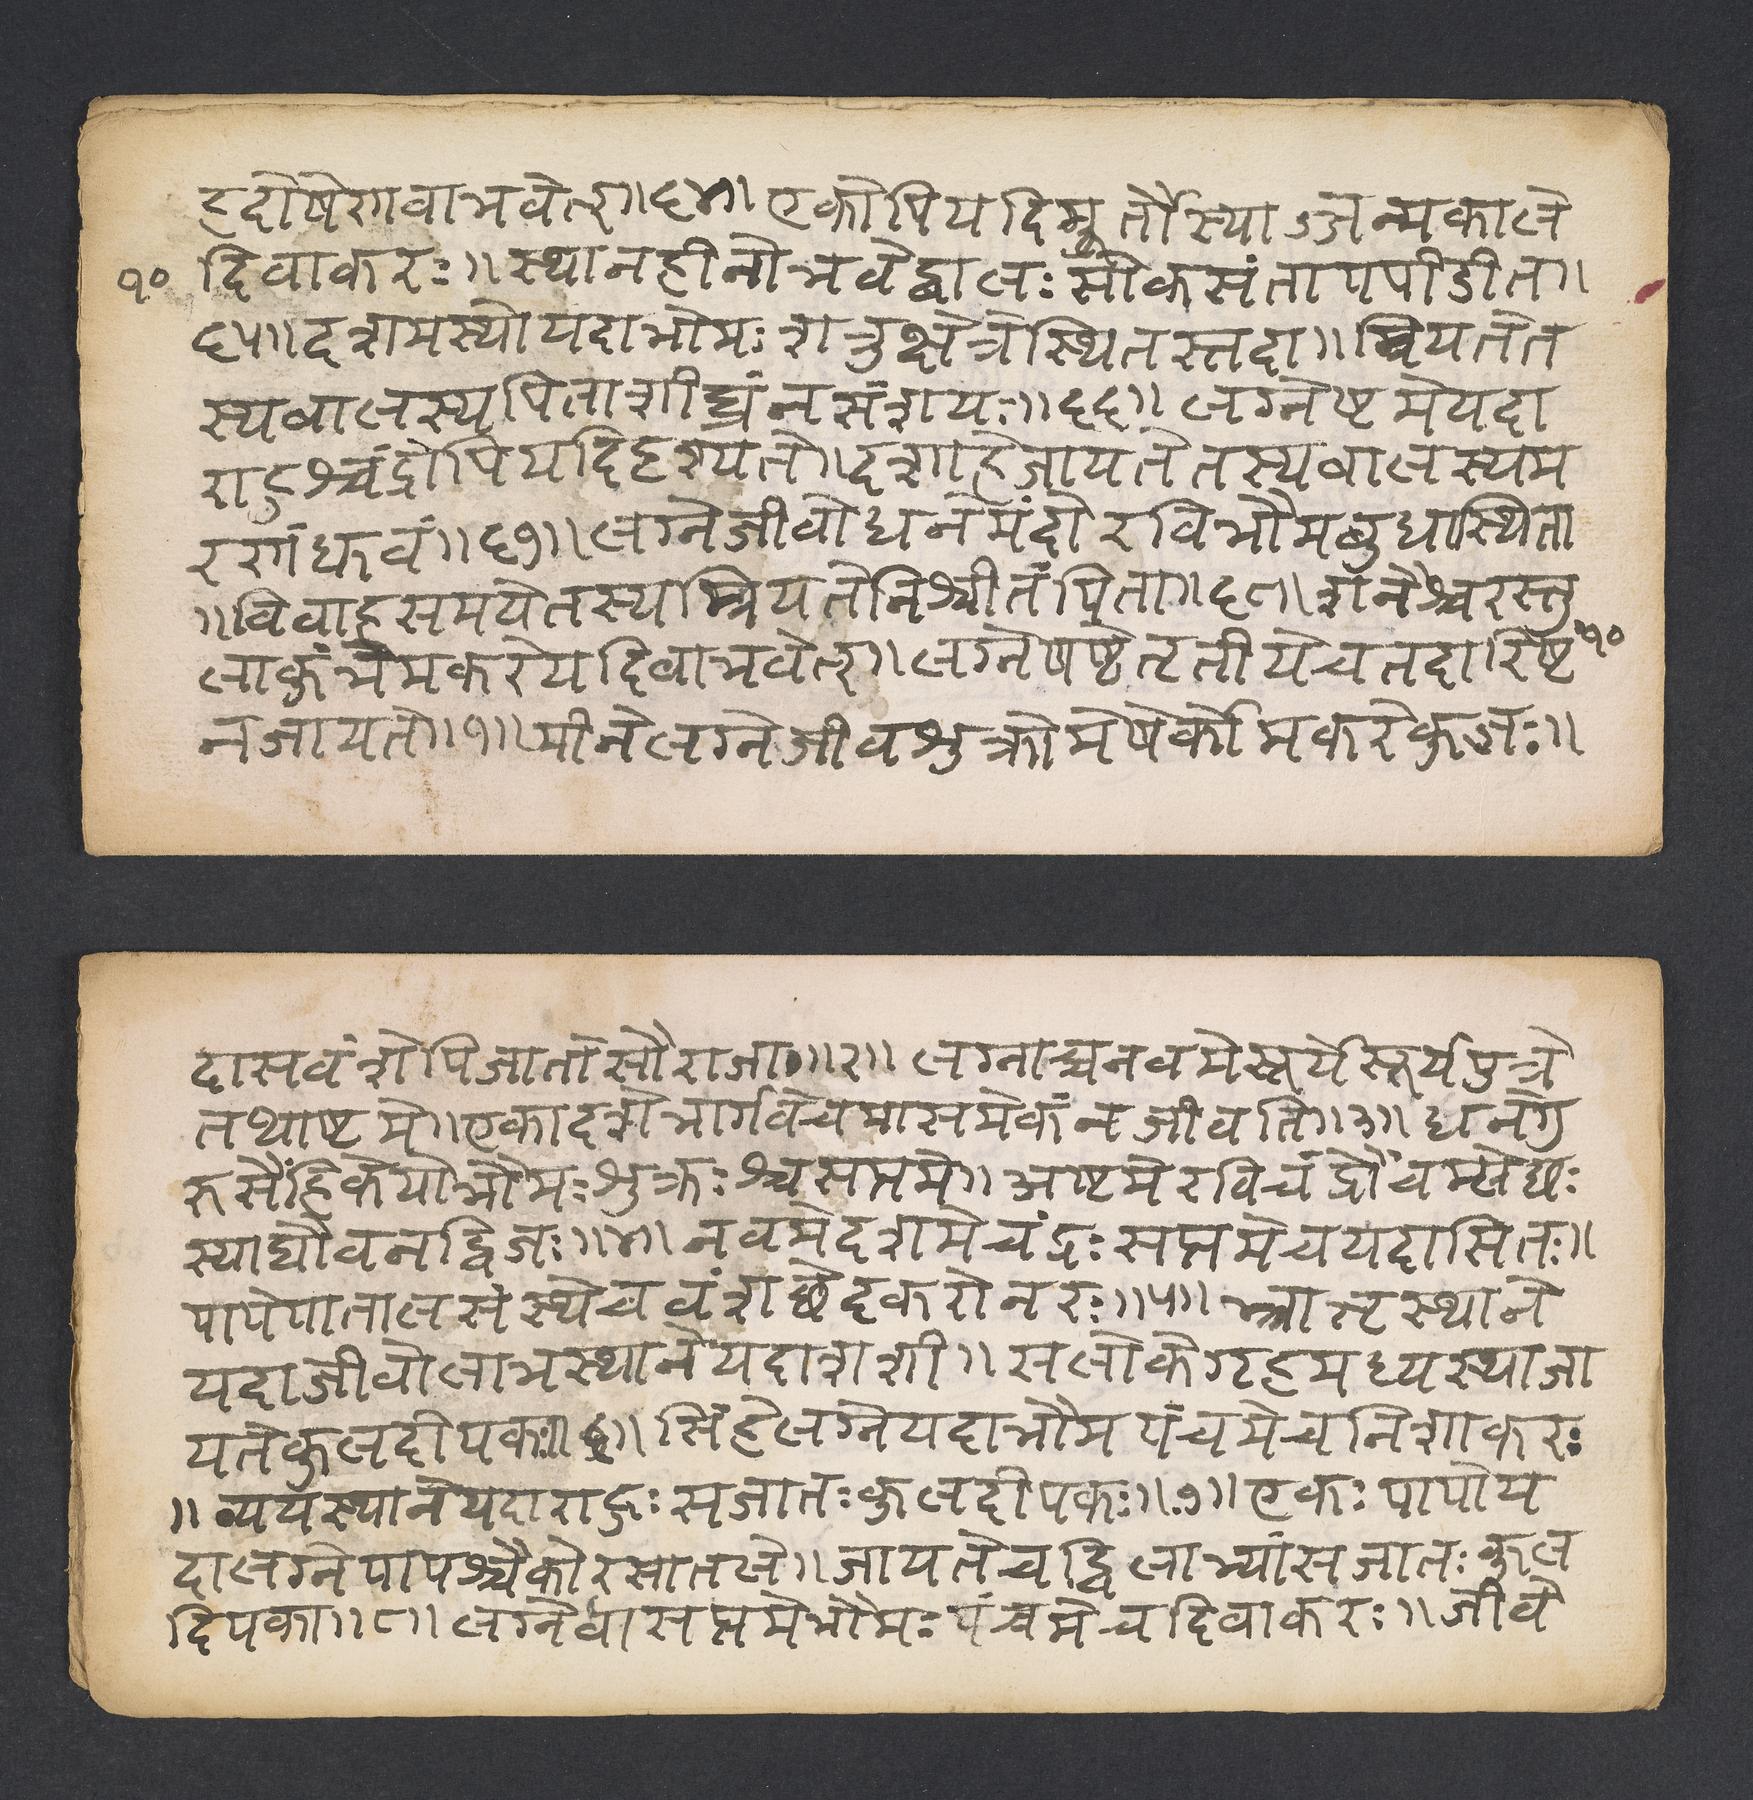 हदोषेणवाभवेत्॥६४॥एकोपियदिमूर्तौस्याज्जन्मकाले
१० दिवाकरः॥स्थानहीनोभवेद्बालःसोकसंतापपीडीत॥
६५॥दशमस्थोयदाभौमःशत्रुक्षेत्रेस्थितस्तदा॥म्रियतेत
स्यबालस्यपिताशीघ्रंनसंशयः॥६६॥लग्नेष्टमेयदा
राहुश्चंद्रोपियदिदृश्यते॥दशाहेजायतेतस्यबालस्यम
रणंध्रुवं॥६७॥लग्नेजीवोधनेमंदोरविभौमबुधास्थिता
॥विवाहसमयेतस्यम्रियतेनिश्चीतंपिता॥६८॥शनैश्चरस्तु
लाकुंभेमकरेयदिवाभवेत्॥लग्नेषष्टेतृतीयेचतदारिष्टं १०
नजायते॥१॥मीनेलग्नेजीवशुक्रोमेषेर्कोमकरेकुजः॥
दासवंशेपिजातोसौराजा॥२॥लग्नाच्चनवमेसूर्येसूर्यपुत्रे
तथाष्टमे॥एकादशेभार्गवेचमासमेकंनजीवति॥३॥धनेगु
रुसैंहिकेयोभौमःशुक्रःश्चसप्तमे॥अष्टमेरविचंद्रौचम्लेछः
स्याद्यौवनद्विजः॥४॥नवमेदशमेचंद्रःसप्तमेचयदासितः॥
पापेपातालसंस्थेचवंशछेदकरोनरः॥५॥भ्रातृस्थाने
यदाजीवोलाभस्थानेयदाशशी॥सलोकैगृहमध्यस्थाजा
यतेकुलदीपकः॥६॥सिंहेलग्नेयदाभौमपंचमेचनिशाकरः
॥व्ययस्थानेयदाराहुःसजातःकुलदीपकः॥७॥एकःपापोय
दालग्नेपापश्चैकोरसातले॥जायतेचद्विलाभ्यांसजातःकुल
दिपका॥८॥लग्नेवासप्तमेभौमःपंचमेचदिवाकरः॥जीवे